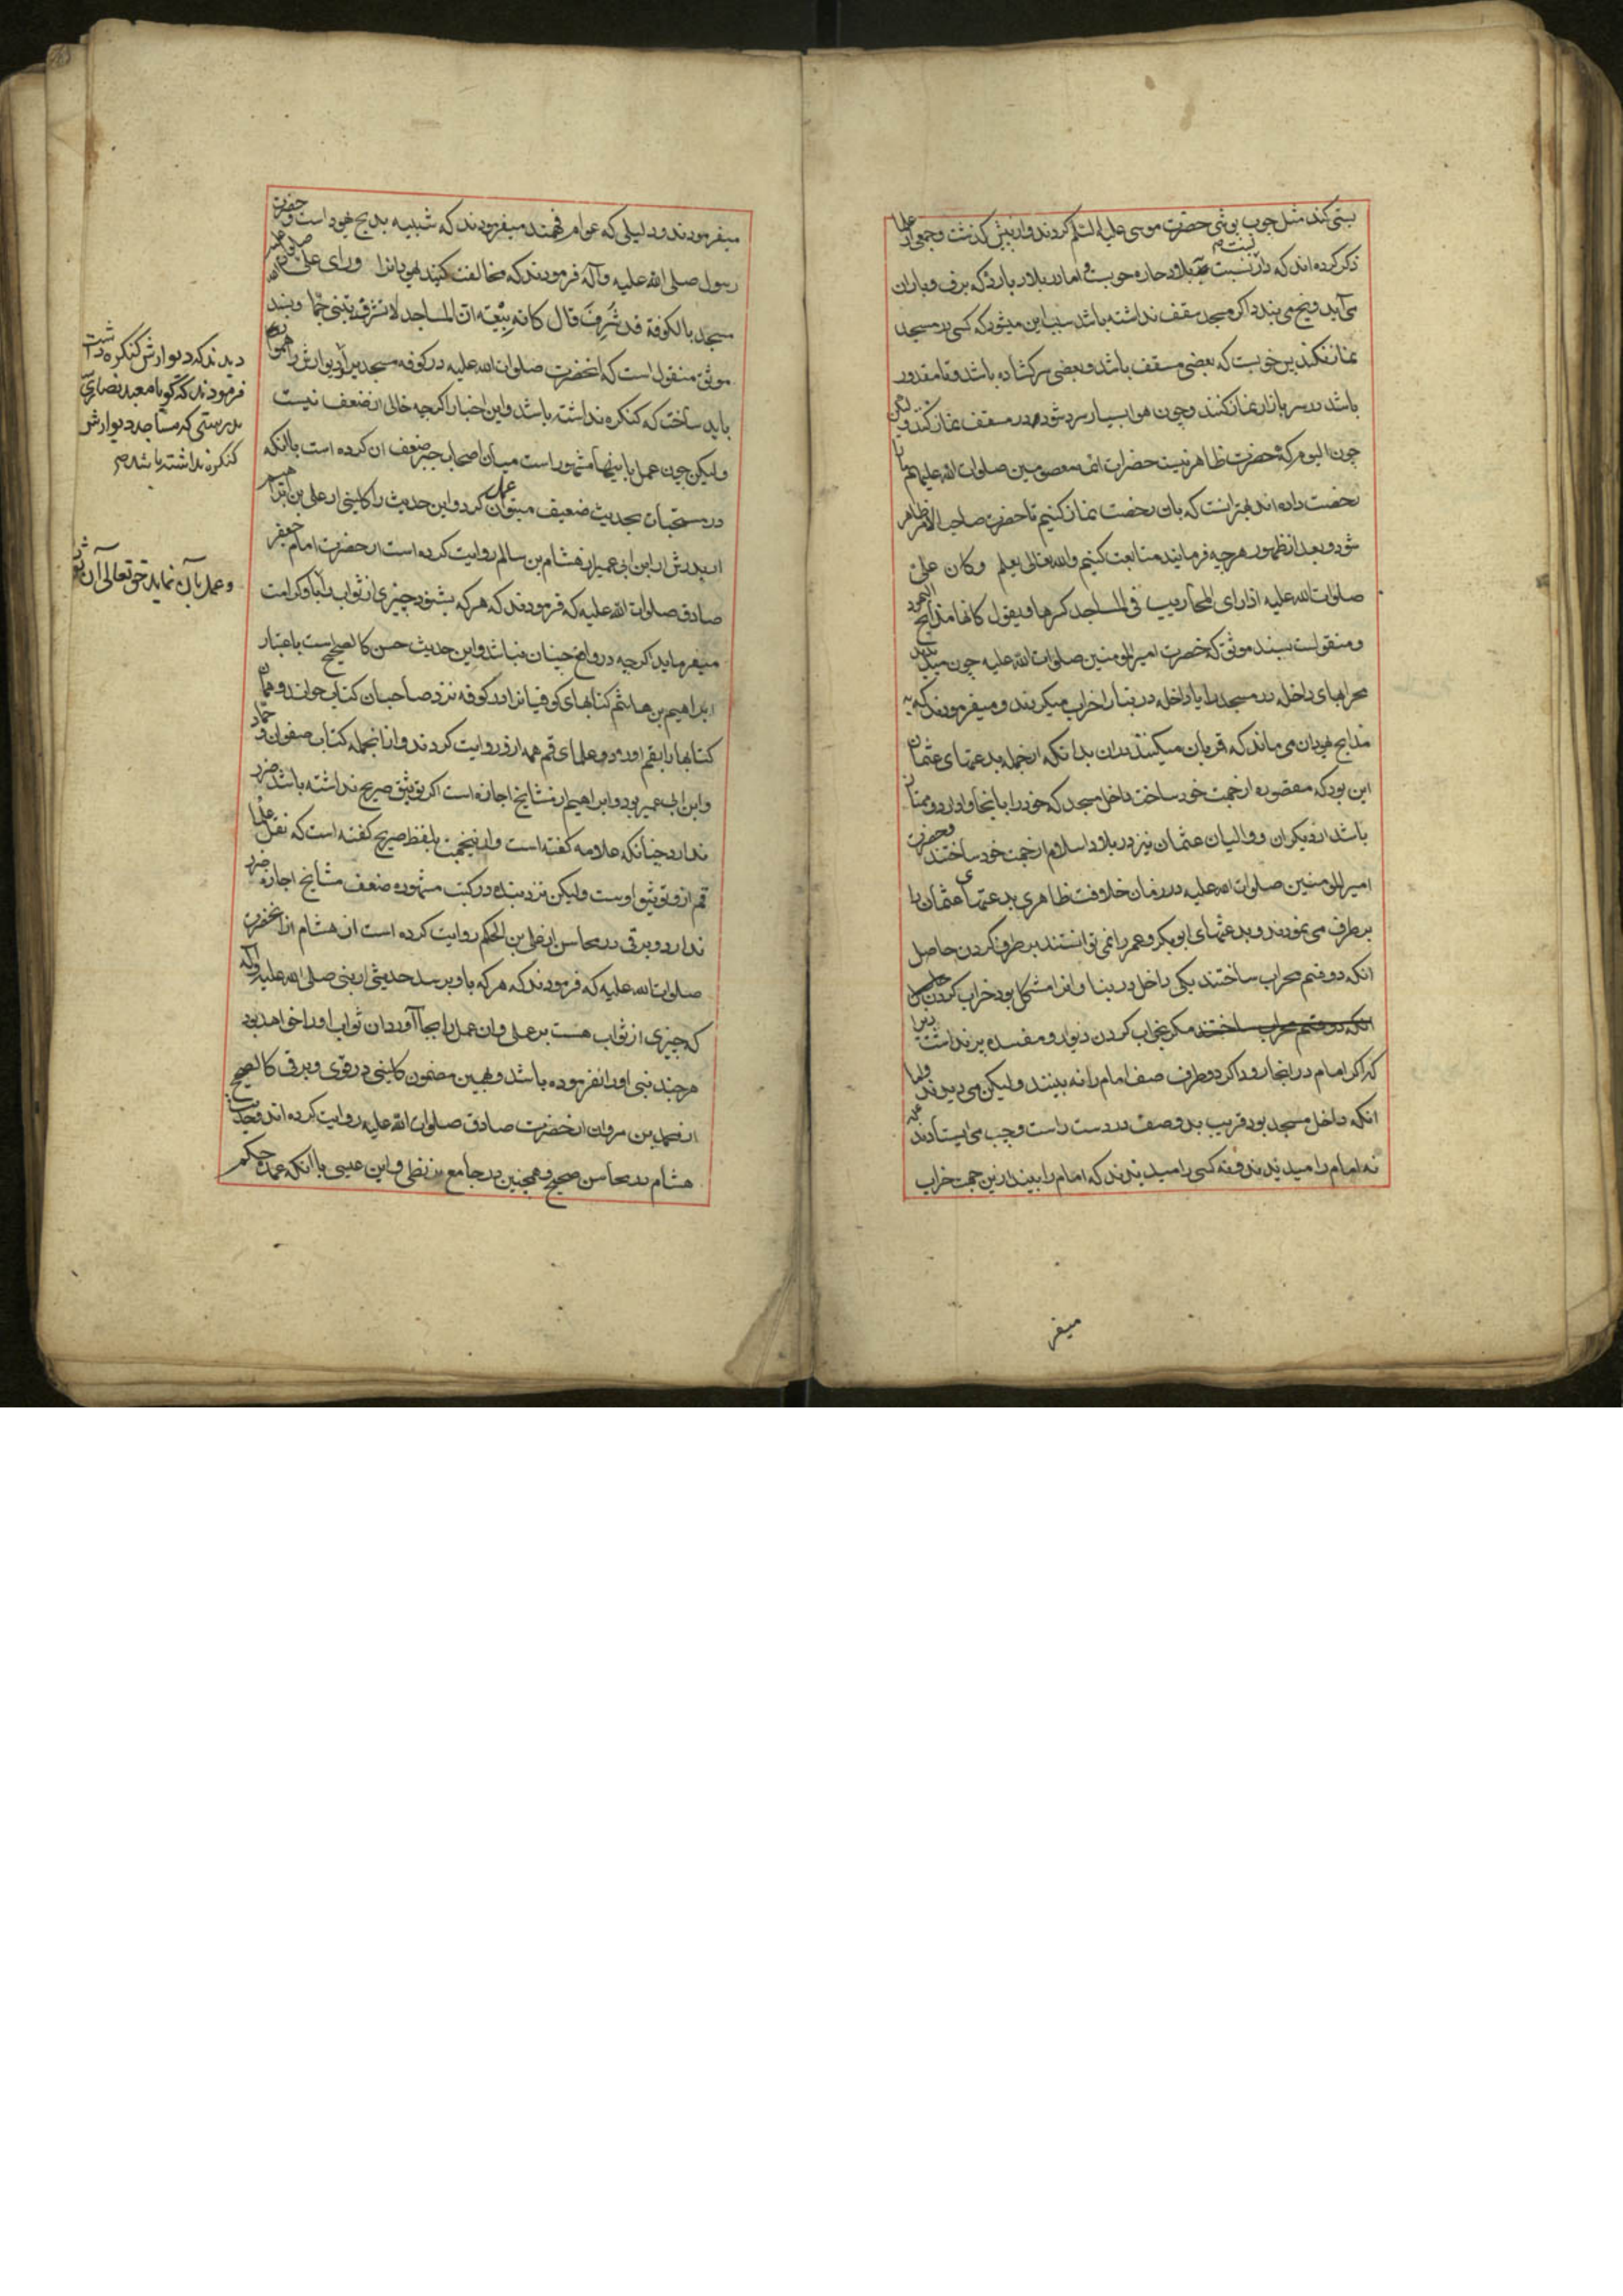 بستی کند مثل چوب پوشی حضرت موسی علیه السلم کردند و از پیش گذشت و جمعی از علما
ذکر کرده‌اند که دار نسبت ببلاد حاره خوبست و اما در بلاد بارده که برف و باران
می‌آید و یخ می بندد اگر مسجد سقف نداشته باشد سبب این میشود که کسی در مسجد
نماز نکند پس خوبست که بعضی مسقف باشد و بعضی سرکشاده باشد و تا مقدور
باشد در سر باز نماز کنند و چون هوا بسیار سرد شود در مسقف نماز کنند و لیکن
چون الیوم که حضرت ظاهر نیست حضرات ائمه معصومین صلوات الله علیهم ما را
رخصت داده‌اند بهتر انست که بان رخصت نماز کنیم تا حضرت صاحب الامر ظاهر
شود و بعد از ظهور هر چه فرمایند متابعت کنیم والله تعالی یعلم وکان علی
صلوات الله علیه اذا رای المحاریب فی المساجد کسرها ویقول کانها مذابح الیهود
و منقولست بسند موثق که حضرت امیر المومنین صلوات الله علیه چون میدیدند
محرابهای داخله در مسجد را یا داخله در بنا را خراب میکردند و میفرمودند که به
مذابح یهودان می ماند که قربان میکنند در ان بدانکه از جمله بدعتهای عثمان
این بود که مقصوره از جهت خود ساخت داخل مسجد که خود را با نجا و او در و ممتاز
باشد از دیگران و والیان عثمان نیز در بلاد اسلام از جهت خود ساختند و حضرت
امیر المومنین صلوات الله علیه در زمان خلافت ظاهری بدعتهای عثمان را
بر طرف می نمودند و بدعتهای ابوبکر و عمر را نمی توانستند بر طرف کردن حاصل
انکه دو قسم محراب ساختند یکی داخل در بنا و انرا مشکل بود خراب کردن
انکه دو قسم محراب ساختند مگر بخراب کردن دیوار و مفسده بر نداشت زیرا
که اگر امام در انجا رود اگر دو طرف صف امام را نه بینند ولیکن می دیدند و اما
انکه داخل مسجد بود قریب بدو صف در دست راست و چپ می ایستادند که
نه امام را میدیدند و نه کسی را میدیدند که امام را بیند ازین جهت خراب
میفر
میفرمودند و دلیلی که عوام فهمند میفرمودند که شبیه بمذبح یهود است و حضرت
رسول صلی الله علیه وآله فرمودند که مخالفت کنید یهودانرا ورای علی صلوات الله علیه
مسجدا بالکوفة قد شُرِفَ قال کانه بِیْعَة ان المساجد لا تشرف تبنی جُمّا و بسند
موثق منقول است که انحضرت صلوات الله علیه در کوفه مسجدیرا دیوارش را هموار
باید ساخت که کنکره نداشته باشد و این اخبار اکرچه خالی از ضعف نیست
ولیکن چون عمل باینها مشهور است میان اصحاب جبر ضعف ان کرده است باانکه
در مستحبات بحدیث ضعیف عمل میتوان کرد و این حدیث را کلینی از علی بن ابراهیم
از پدرش از ابن ابی عمیر از هشام بن سالم روایت کرده است از حضرت امام جعفر
صادق صلوات الله علیه که فرمودند که هر که بشنود چیزی از ثواب را باو کرامت
میفرماید اکرچه در واقع چنان نباشد و این حدیث حسن کالصحیح است باعتبار
ابراهیم بن هاشم کتابهای کوفیانرا در کوفه نزد صاحبان کتاب خواند و همان
کتابها را بقم اورد و علمای قم همه ازو روایت کردند و از انجمله کتاب صفوان و حماد
و ابن ابی عمیر بود و ابراهیم از مشایخ اجازه است اکر توثیق صریح نداشته باشد ضرر
ندارد چنانکه علامه کفته است و ازینجهت بلفظ صریح کفته است که نقل علما
قم ازو توثیق اوست ولیکن نزد بنده در کتب مشهوره ضعف مشایخ اجازه ضرر
ندارد و برقی در محاسن از علی بن الحکم روایت کرده است از هشام از انحضرت
صلوات الله علیه که فرمودند که هر که باو برسد حدیثی از نبی صلی الله علیه واله
که چیزی از ثواب هست بر عملی و ان عمل را بجا آورد ان ثواب او را خواهد بود
هر چند نبی او را نفرموده باشد و بهمین مضمون کلینی در قوی و برقی کالصحیح
از محمد بن مروان از حضرت صادق صلوات الله علیه روایت کرده‌اند و حدیث
هشام در محاسن صحیح و همچنین در جامع بزنطی و ابن عیسی باانکه عمده حکم
دیدند که دیوارش کنکره داشت
فرمودند که گویا معبد نصاریست
بدرستی که مساجد دیوارش
کنکره نداشته باشد صح
و عمل بآن نماید حق تعالی آن ثواب